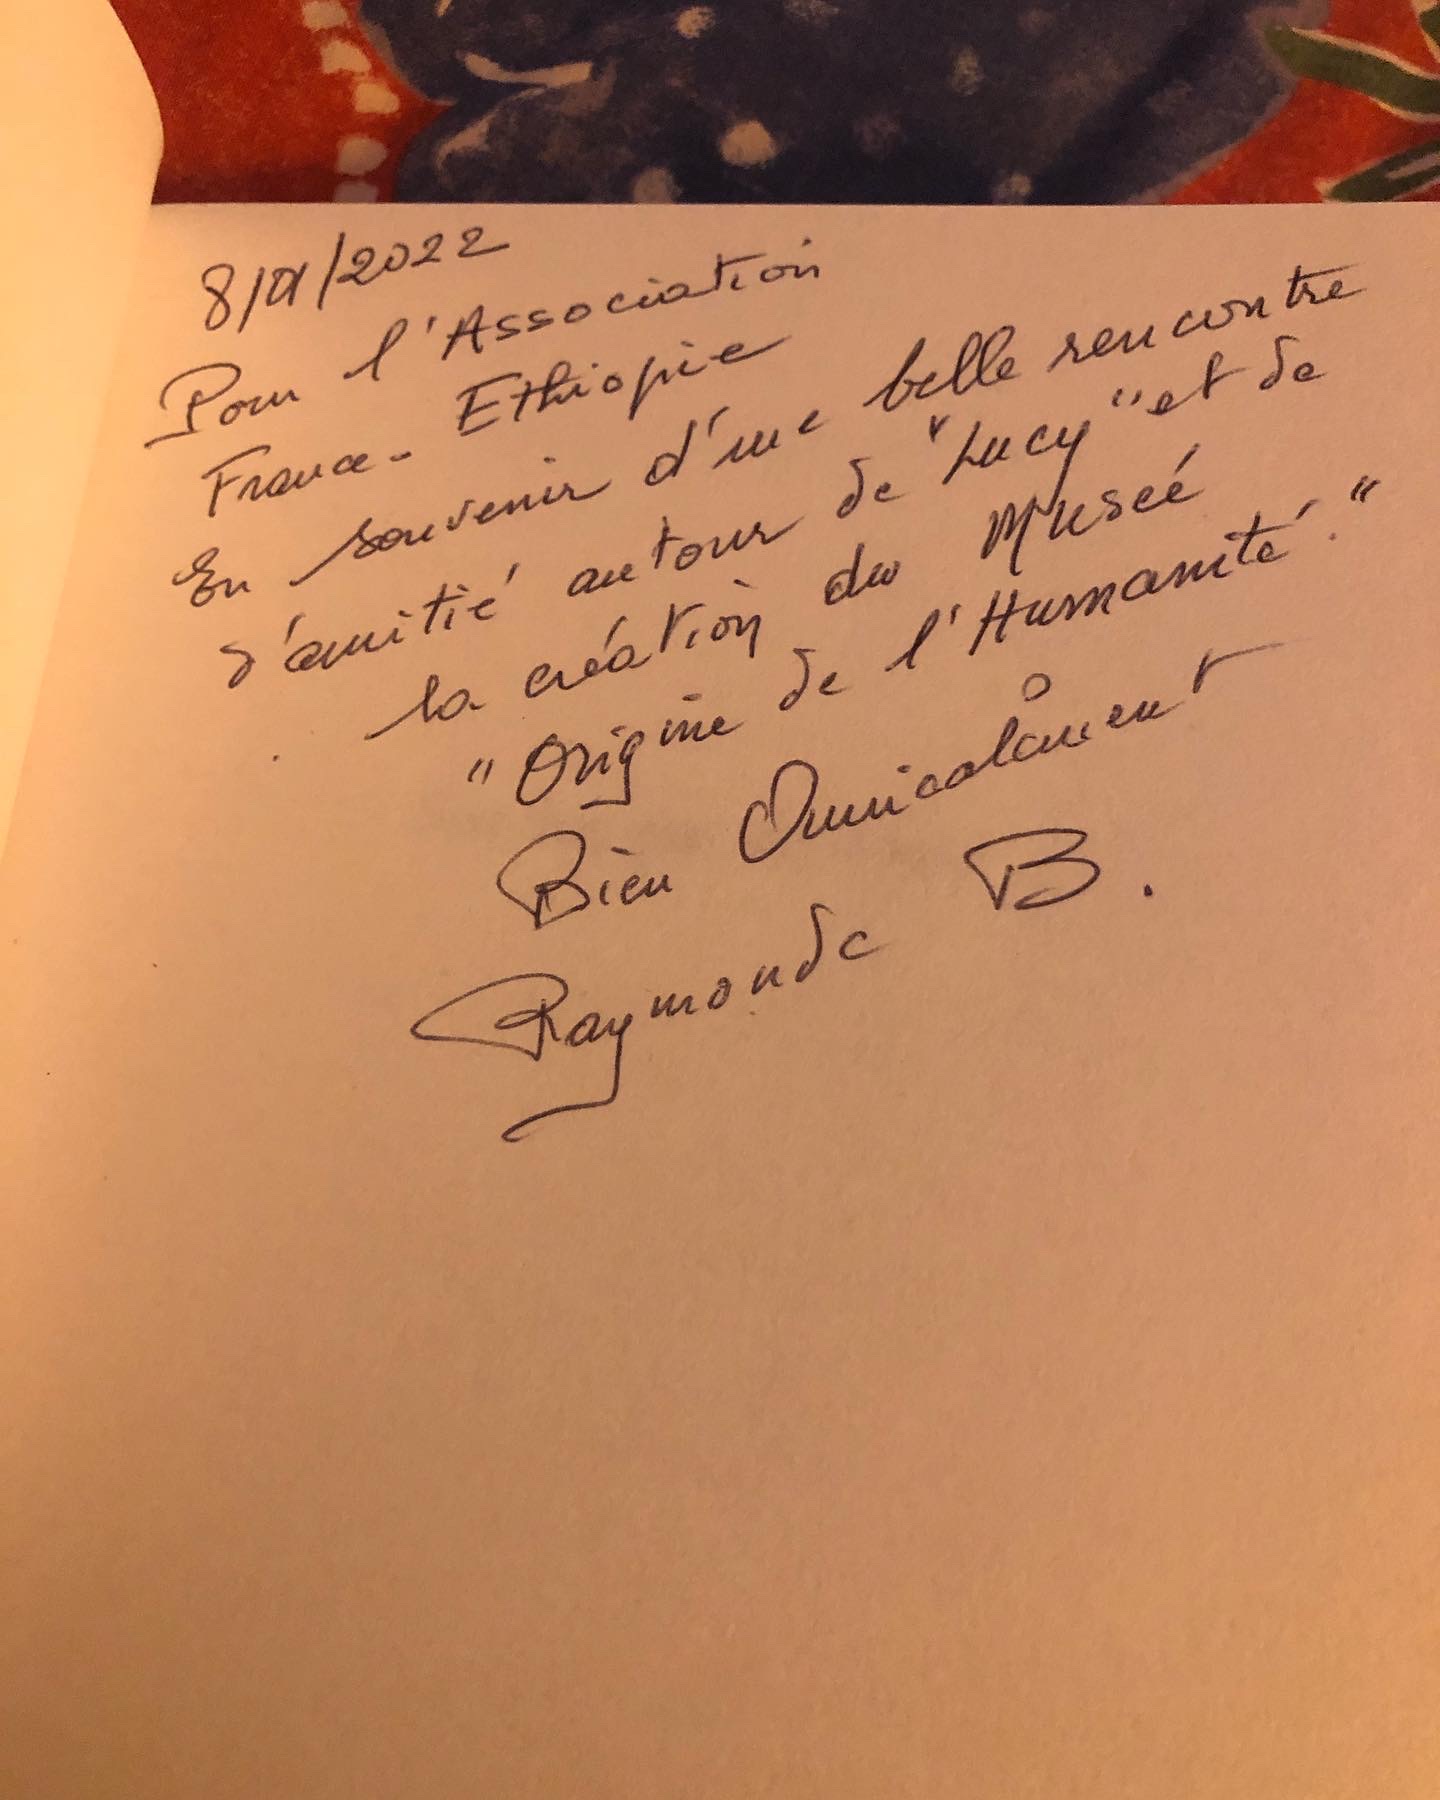 8/01/2022
Pour l'Association
France-Ethiopie
En souvenir d'une belle rencontre
d'amitié autour de "Lucy" et de
la création du Museé
"Origine de l'Humanité."
Bien Amicalement
Raymonde B.